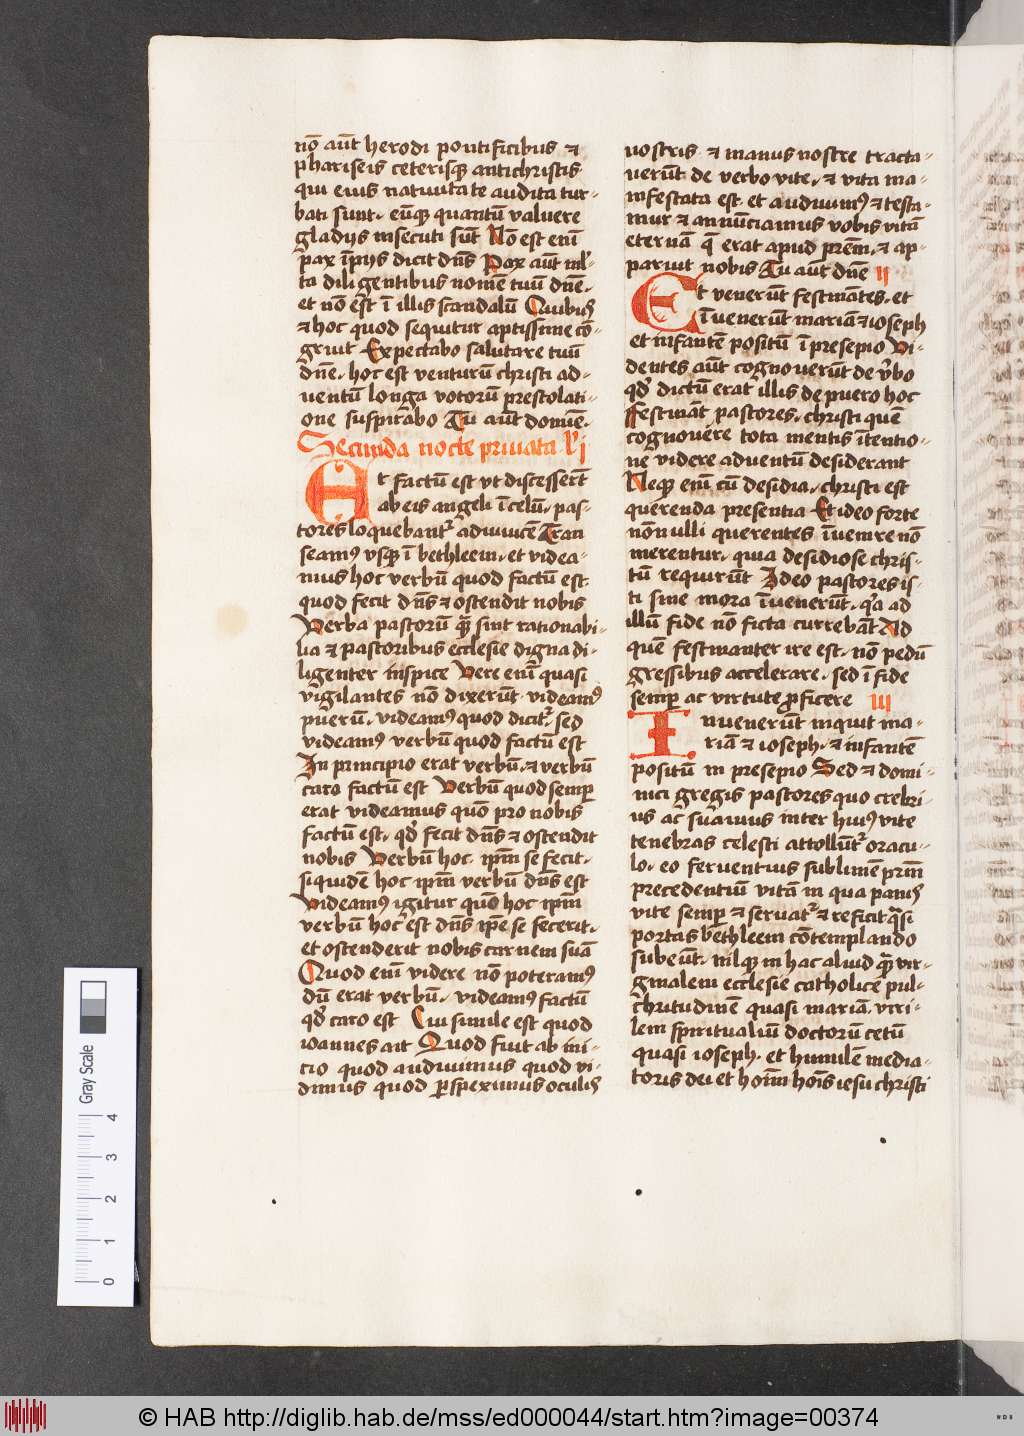 nō aūt herodi pontificibus ⁊
phariseis ceterisqꝫ antichristis
qui eius natiuitate audita tur-
bati sunt. eūqꝫ quantū valuere
gladijs insecuti sūt Nō est enī
pax īpijs dicit dn̄s Pax aūt ml̓-
ta diligentibus nomē tuū dn̄e.
et nō est ī illis scandalū Quibꝰ
⁊ hoc quod sequitur aptissime cō-
gruit Expectabo salutare tuū
dn̄e. hoc est venturū christi ad-
uentū longa votorū prestolati-
one suspirabo Tu aūt domīe.
Secunda nocte priuata l̓ i
Et factū est vt discesserēt
ab eis angeli ī celū. pas-
tores loquebantᷣ adinuicē Tran
seamꝰ vsqꝫ ī bethleem. et videa-
mus hoc verbū quod factū est
quod fecit dn̄s ⁊ ostendit nobis
Verba pastorū qꝫ sint rationabi-
lia ⁊ pastoribus ecclesie digna di-
ligenter inspice Vere enī quasi
vigilantes nō dixerūt. videamꝰ
puerū. videamꝰ quod dicitᷣ. sed
videamꝰ verbū quod factū est
In principio erat verbū. ⁊ verbū
caro factū est Verbū quod semper
erat videamus quō pro nobis
factū est. qd̓ fecit dn̄s ⁊ ostendit
nobis Verbū hoc ip̄m se fecit.
siquidē hoc ip̄m verbū dn̄s est
Videamꝰ igitur quō hoc ip̄m
verbū hoc est dn̄s ip̄e se fecerit.
et ostenderit nobis carnem suā
Quod enī videre nō poteramꝰ
dū erat verbū. videamꝰ factū
qd̓ caro est Cui simile est quod
ioannes ait Quod fuit ab ini-
cio quod audiuimus quod vi-
dimus quod ꝑspeximus oculis
nostris ⁊ manus nostre tracta-
uerūt de verbo vite. ⁊ vita ma-
nifestata est et audiuimꝰ ⁊ testa-
mur ⁊ annūciamus vobis vitā
eternā q̄ erat apud pr̄em. ⁊ ap-
paruit nobis Tu aūt dn̄e ij
Et venerūt festinātes. et
īuenerūt mariā ⁊ ioseph
et infantē positū ī presepio Vi-
dentes aūt cognouerūt de v̓bo
qd̓ dictū erat illis de puero hoc
Festināt pastores. christi quē
cognouere tota mentis ītentio-
ne videre aduentū desiderant
Neqꝫ enī cū desidia. christi est
querenda presentia Et ideo forte
nōnulli querentes īuenire nō
merentur. quia desidiose chris-
tū requirūt Ideo pastores is-
ti sine mora īuenerūt. q̓a ad
illū fide nō ficta currebāt Ad
quē festinanter ire est. nō pedū
gressibus accelerare. sed ī fide
semper ac virtute ꝓficere iij
Inuenerūt inquit ma-
riā ⁊ ioseph. ⁊ infantē
positū in presepio Sed ⁊ domi-
nici gregis pastores quo crebri-
us ac suāmus inter huiꝰ vite
tenebras celesti attollūtᷣ oracu-
lo. eo feruentius sublimē pr̄m
precedentiū vitā in qua panis
vite semper ⁊ seruatᷣ ⁊ reficit q̄si
portas bethleem cōtemplando
subeūt. nilqꝫ in hac aliud qꝫ vir-
ginalem ecclesie catholice pul-
chritudinē quasi mariā. viri-
lem spiritualiū doctorū cetū
quasi ioseph. et humilē media-
toris dei et hoīm hoīs iesu christi
Gray Scale
4
3
2
1
0
© HAB http://diglib.hab.de/mss/ed000044/start.htm?image=00374